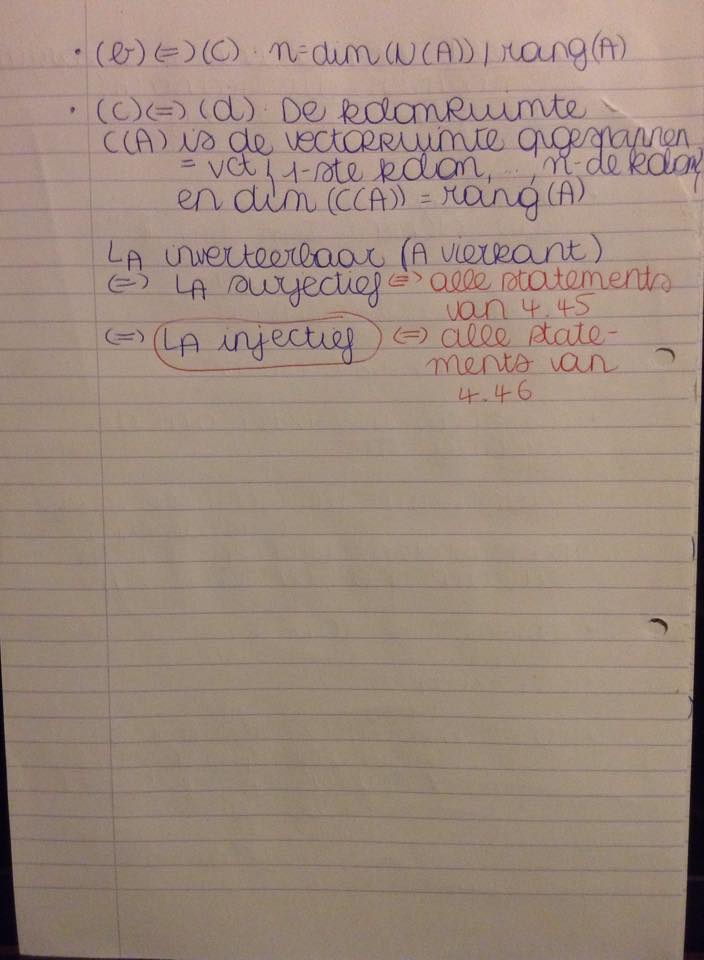 • (b) <=> (c) · n = dim (N(A)) / rang(A)
• (c) <=> (d) · De kolomruimte
C(A) is de vectorruimte opgespannen
= vct { 1-ste kolom, ..., n-de kolom}
en dim (C(A)) = rang(A)
LA inverteerbaar (A vierkant)
<=> LA surjectief <=> alle statements
van 4.45
<=> LA injectief <=> alle state-
ments van
4.46